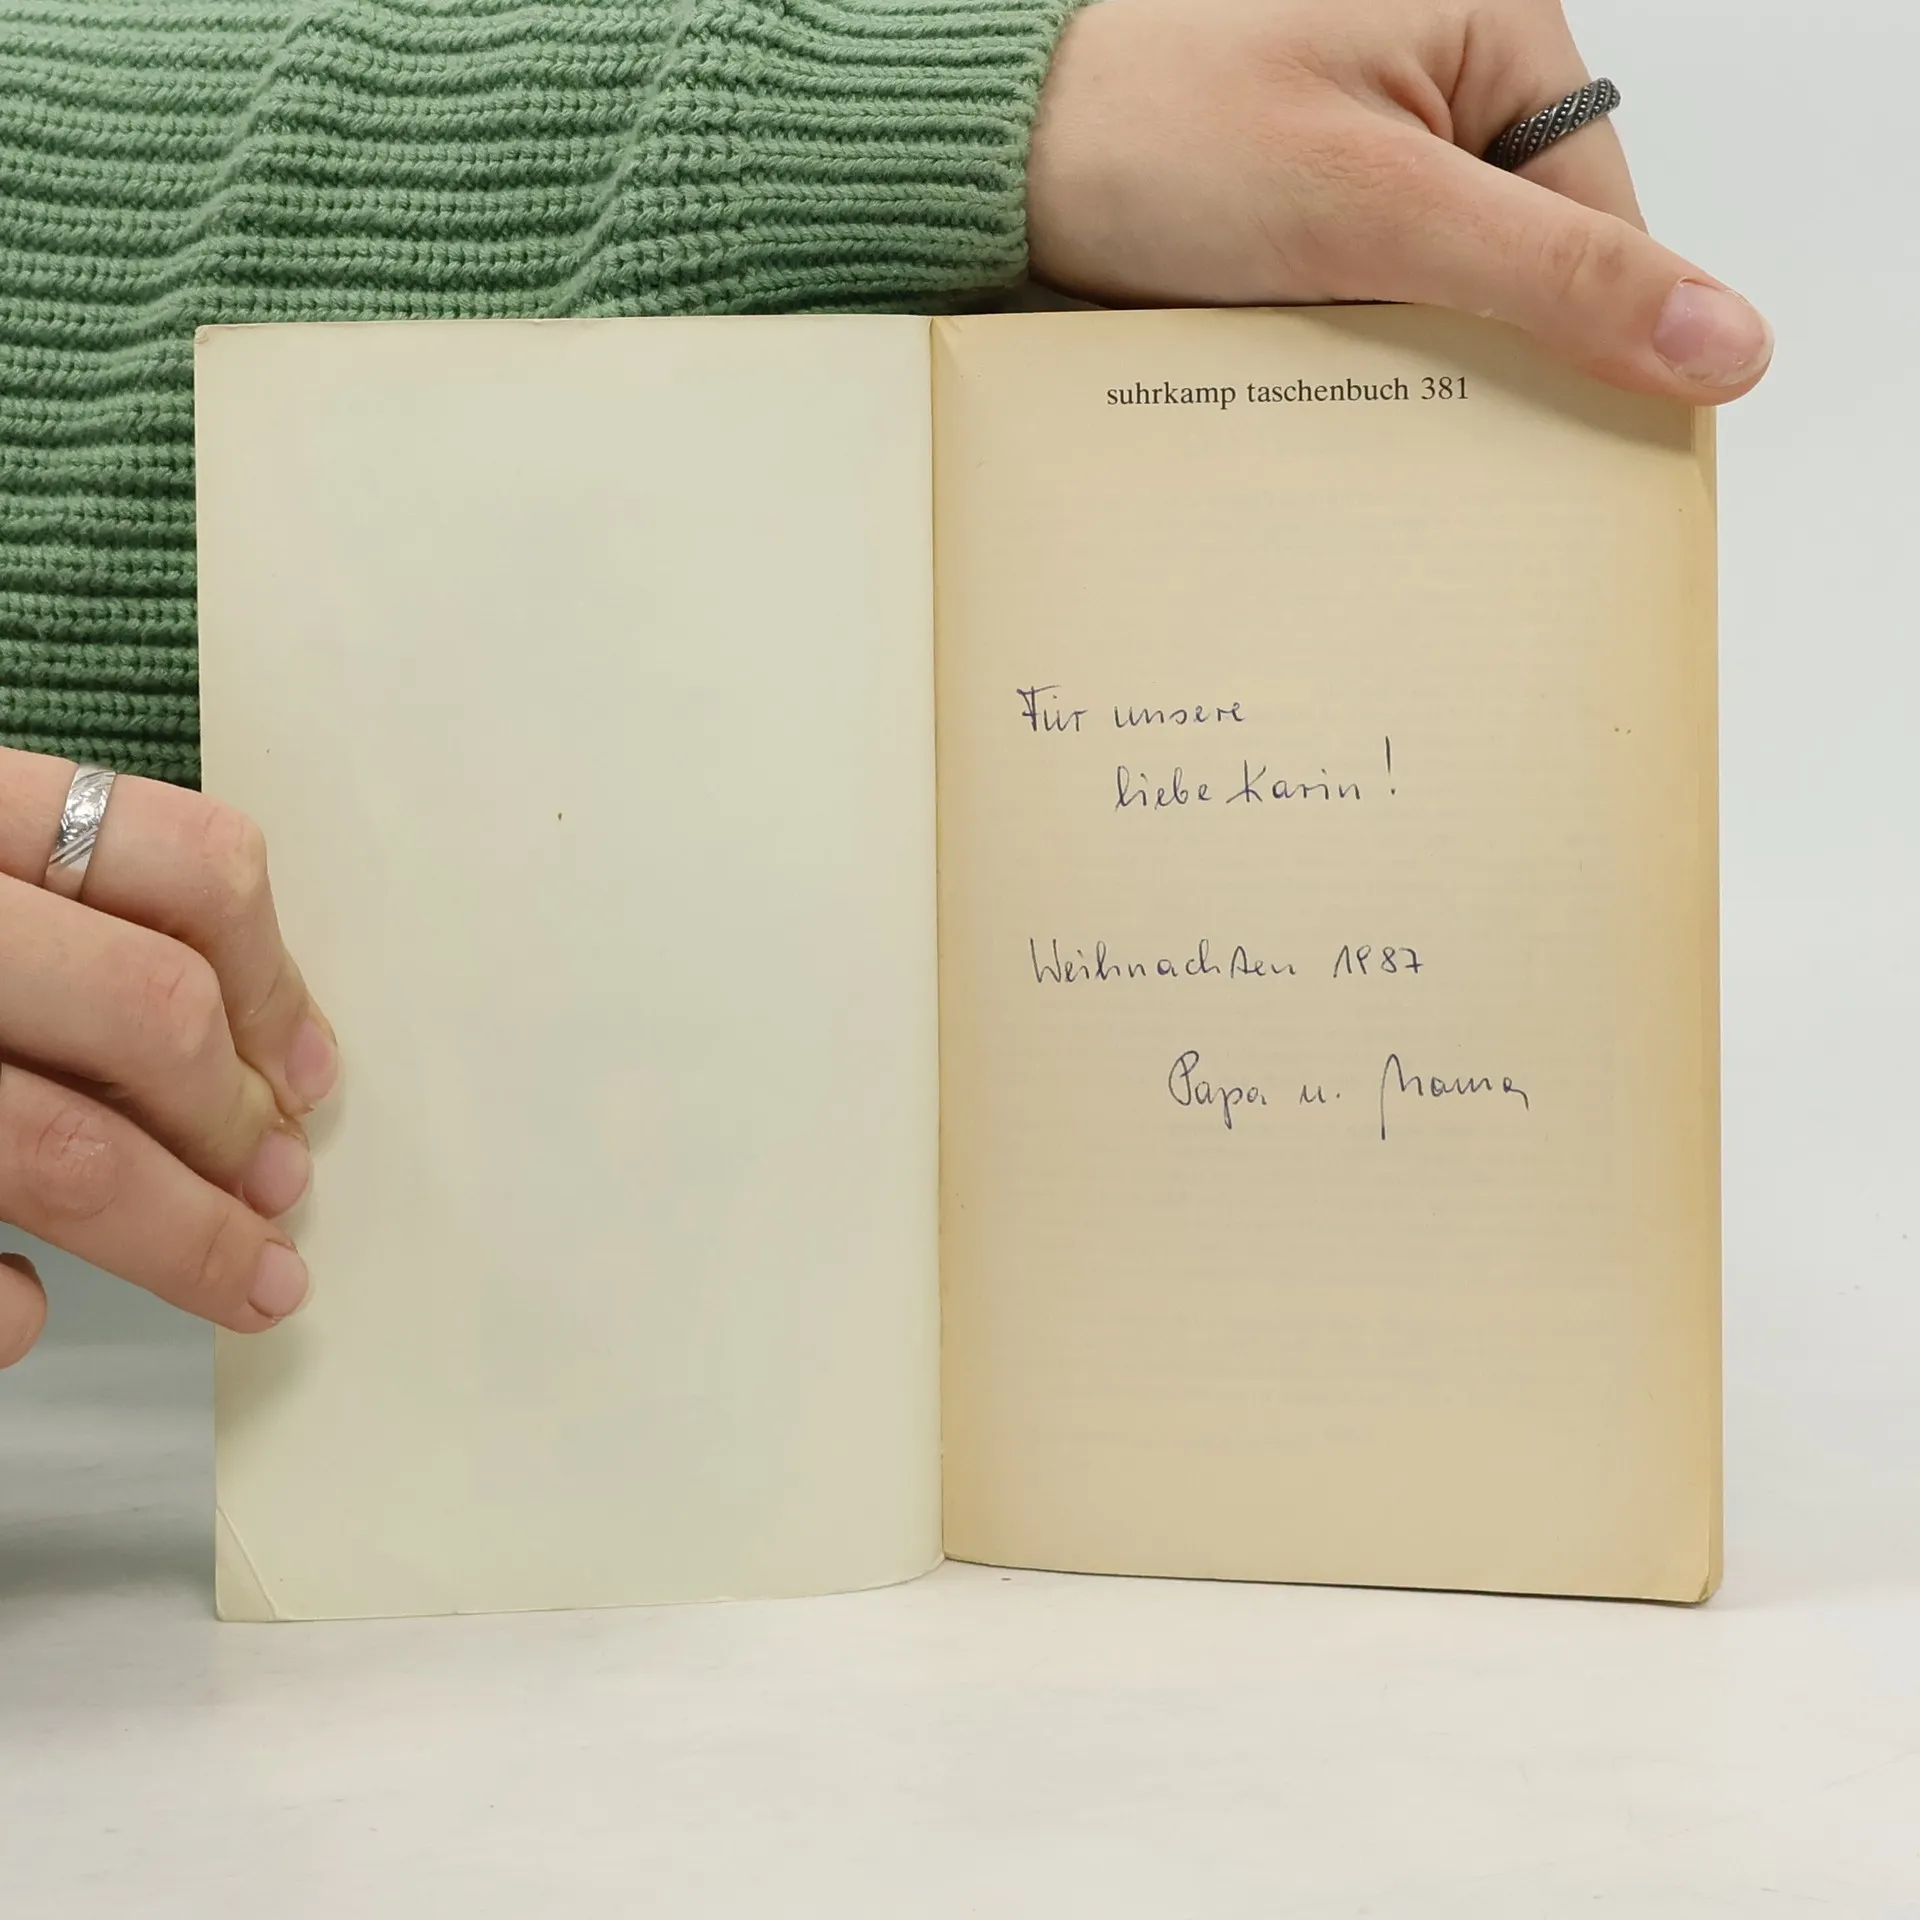 suhrkamp taschenbuch 381
Für unsere
liebe Karin!
Weihnachten 1987
Papa u. Mama